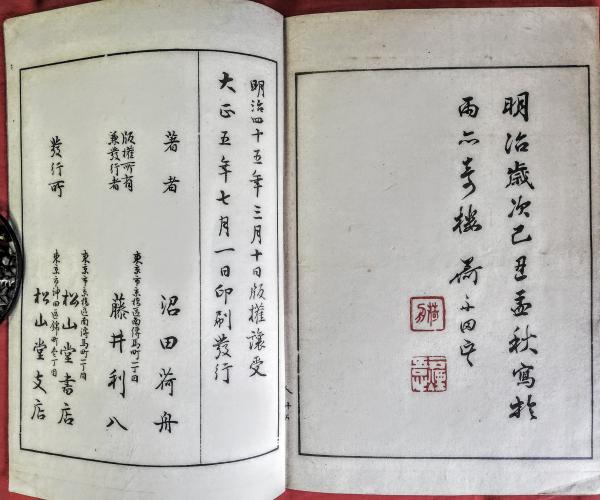 明治歳次己丑孟秋寫於
雨亦奇樓 荷
明治四十五年三月十日版權讓受
大正五年七月一日印刷發行
著者 沼田荷舟
版權所有
兼發行者
東京市京橋區南傳馬町一丁目
藤井利八
發行所
東京市京橋區南傳馬町一丁目
松山堂書店
東京市神田區錦町一丁目
松山堂支店